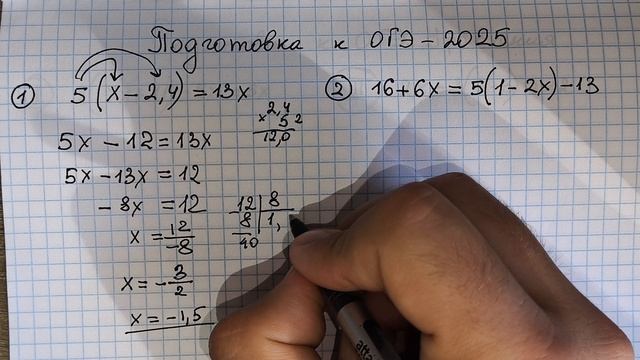 Подготовка к ОГЭ – 2025
① 5(x – 2,4) = 13x
5x – 12 = 13x
5x – 13x = 12
– 8x = 12
x = 12/–8
x = – 3/2
x = –1,5
×2,4
5 2
12,0
–12 | 8
8 | 1,
40
② 16 + 6x = 5(1 – 2x) – 13